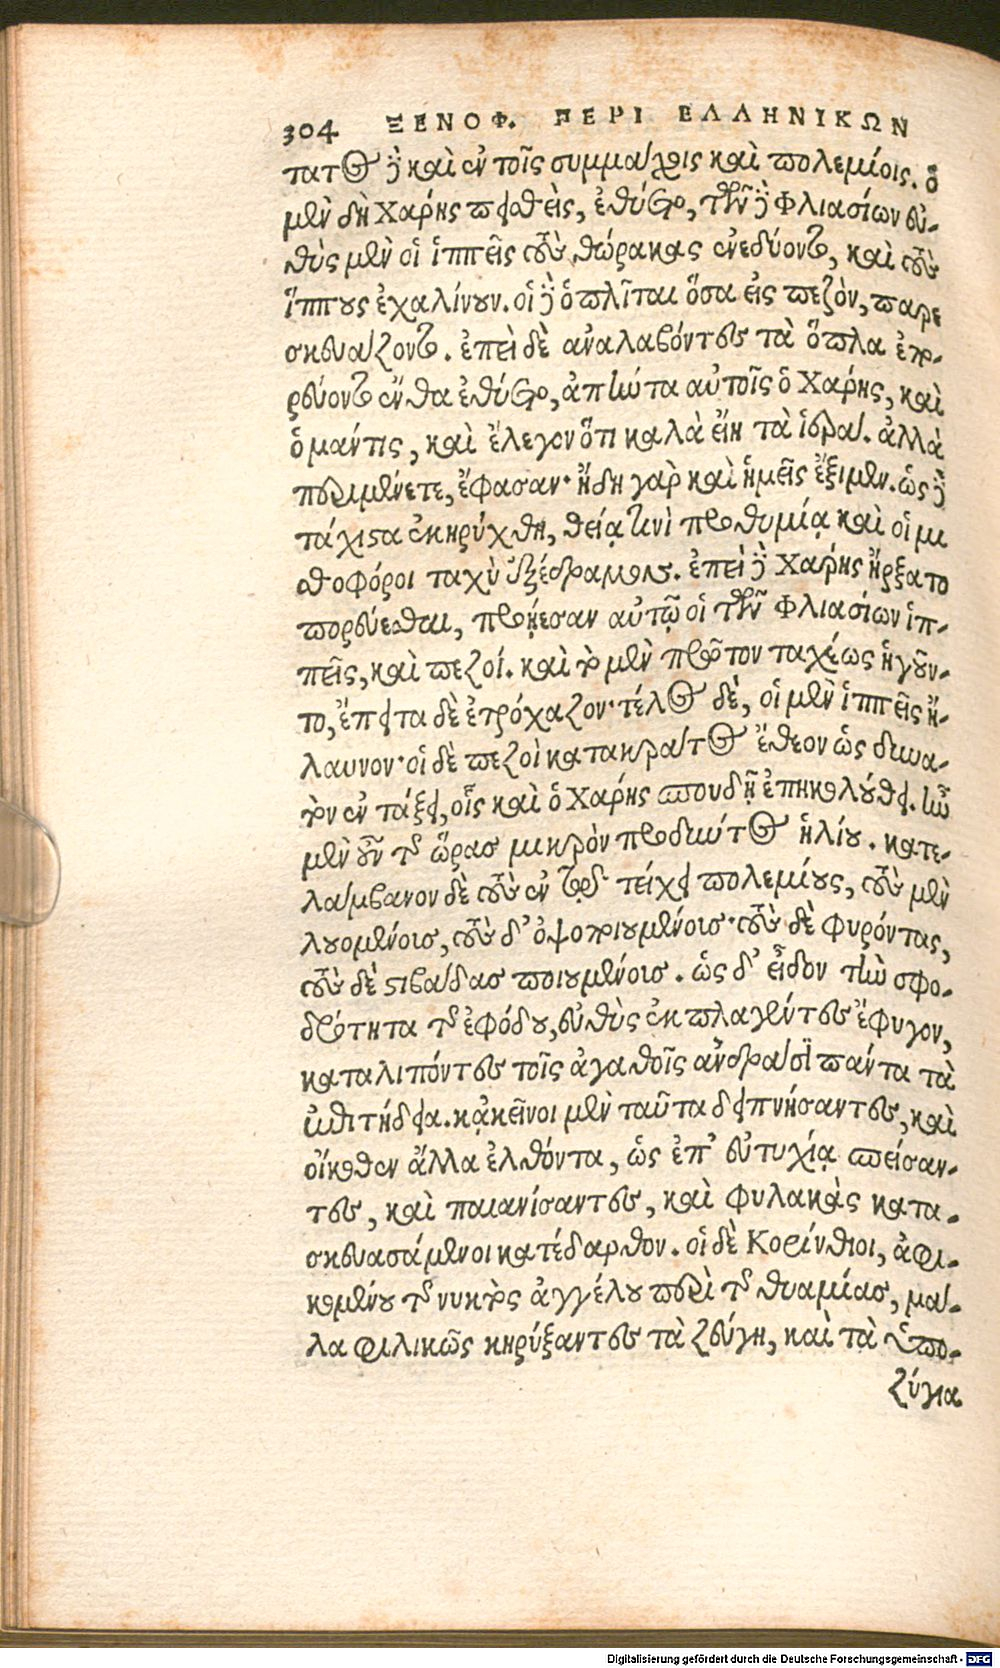 304 ΞΕΝΟΦ. ΠΕΡΙ ΕΛΛΗΝΙΚΩΝ
τατος δὲ καὶ ἐν τοῖς συμμάχοις καὶ πολεμίοις. ὁ
μὲν δὴ Χάρης πειθεὶς, ἐθύετο, τῶν δὲ Φλιασίων εὐ-
θὺς μὲν οἱ ἱππεῖς τοὺς θώρακας ἐνεδύοντο, καὶ τοὺς
ἵππους ἐχαλίνουν. οἱ δὲ ὁπλῖται ὅσα εἰς πεζὸν, παρε
σκευάζοντο. ἐπεὶ δὲ ἀναλαβόντες τὰ ὅπλα ἐπο-
ρεύοντο ἔνθα ἐθύετο, ἀπήντα αὐτοῖς ὁ Χάρης, καὶ
ὁ μάντις, καὶ ἔλεγον ὅτι καλὰ εἴη τὰ ἱερά. ἀλλὰ
περιμένετε, ἔφασαν· ἤδη γὰρ καὶ ἡμεῖς ἔξιμεν. ὡς δὲ
τάχιστα ἐκηρύχθη, θείᾳ τινὶ προθυμίᾳ καὶ οἱ μι
σθοφόροι ταχὺ ἐξέδραμον. ἐπεὶ δὲ Χάρης ἤρξατο
πορεύεσθαι, προῄεσαν αὐτῷ οἱ τῶν Φλιασίων ἱπ-
πεῖς, καὶ πεζοί. καὶ τὸ μὲν πρῶτον ταχέως ἡγοῦν-
το, ἔπειτα δὲ ἐτρόχαζον· τέλος δὲ, οἱ μὲν ἱππεῖς ἤ-
λαυνον· οἱ δὲ πεζοὶ κατακράτος ἔθεον ὡς δυνα-
τὸν ἐν τάξει, οἷς καὶ ὁ Χάρης σπουδῇ ἐπηκολούθει. ἦν
μὲν οὖν τῆς ὥρας μικρὸν προδύντος ἡλίου. κατε-
λάμβανον δὲ τοὺς ἐν τῷ τείχει πολεμίους, τοὺς μὲν
λουομένοις, τοὺς δ' ὀψοποιουμένοις· τοὺς δὲ φυρόντας,
τοὺς δὲ στιβάδας ποιουμένοις. ὡς δ' εἶδον τὴν σφο-
δρότητα τῆς ἐφόδου, εὐθὺς ἐκπλαγέντες ἔφυγον,
καταλιπόντες τοῖς ἀγαθοῖς ἀνδράσι πάντα τὰ
ἐπιτήδεια. κἀκεῖνοι μὲν ταῦτα δειπνήσαντες, καὶ
οἴκοθεν ἄλλα ἐλθόντα, ὡς ἐπ' εὐτυχίᾳ σπείσαν-
τες, καὶ παιανίσαντες, καὶ φυλακὰς κατα-
σκευασάμενοι κατέδαρθον. οἱ δὲ Κορίνθιοι, ἀφι-
κομένου τῆς νυκτὸς ἀγγέλου περὶ τῆς θυαμίας, μά-
λα φιλικῶς κηρύξαντες τὰ ζεύγη, καὶ τὰ ὑπο-
ζύγια
Digitalisierung gefördert durch die Deutsche Forschungsgemeinschaft - DFG